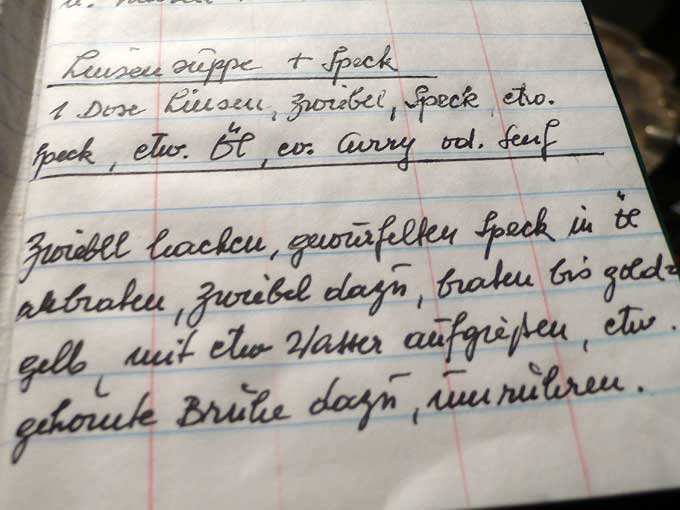 Linsensuppe + Speck
1 Dose Linsen, Zwiebel, Speck, etw.
Speck, etw. Öl, ev. Curry od. Senf
Zwiebel hacken, gewürfelten Speck in Öl
anbraten, Zwiebel dazu, braten bis gold-
gelb, mit etw Wasser aufgießen, etw.
gekörnte Brühe dazu, umrühren.